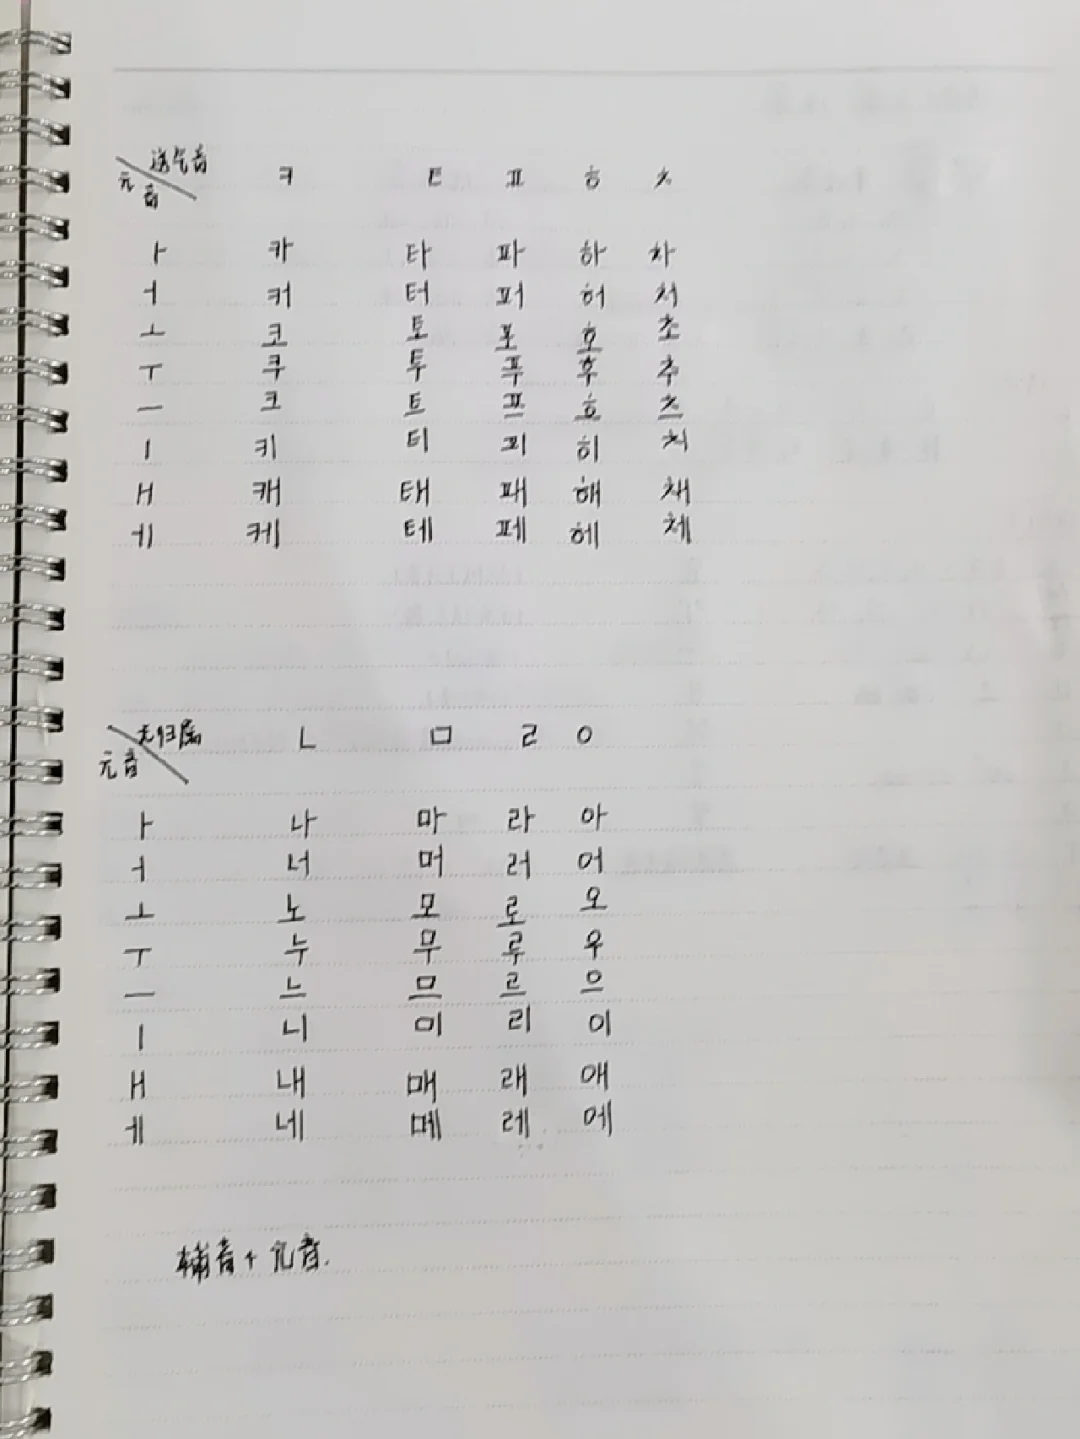 送气音
元音 ㅋ ㅌ ㅍ ㅎ ㅊ
ㅏ 카 타 파 하 차
ㅓ 커 터 퍼 허 처
ㅗ 코 토 포 호 초
ㅜ 쿠 투 푸 후 추
ㅡ 크 트 프 흐 츠
ㅣ 키 티 피 히 치
ㅐ 캐 태 패 해 채
ㅔ 케 테 페 헤 체
无归属
元音 ㄴ ㅁ ㄹ ㅇ
ㅏ 나 마 라 아
ㅓ 너 머 러 어
ㅗ 노 모 로 오
ㅜ 누 무 루 우
ㅡ 느 므 르 으
ㅣ 니 미 리 이
ㅐ 내 매 래 애
ㅔ 네 메 레 에
辅音+元音.